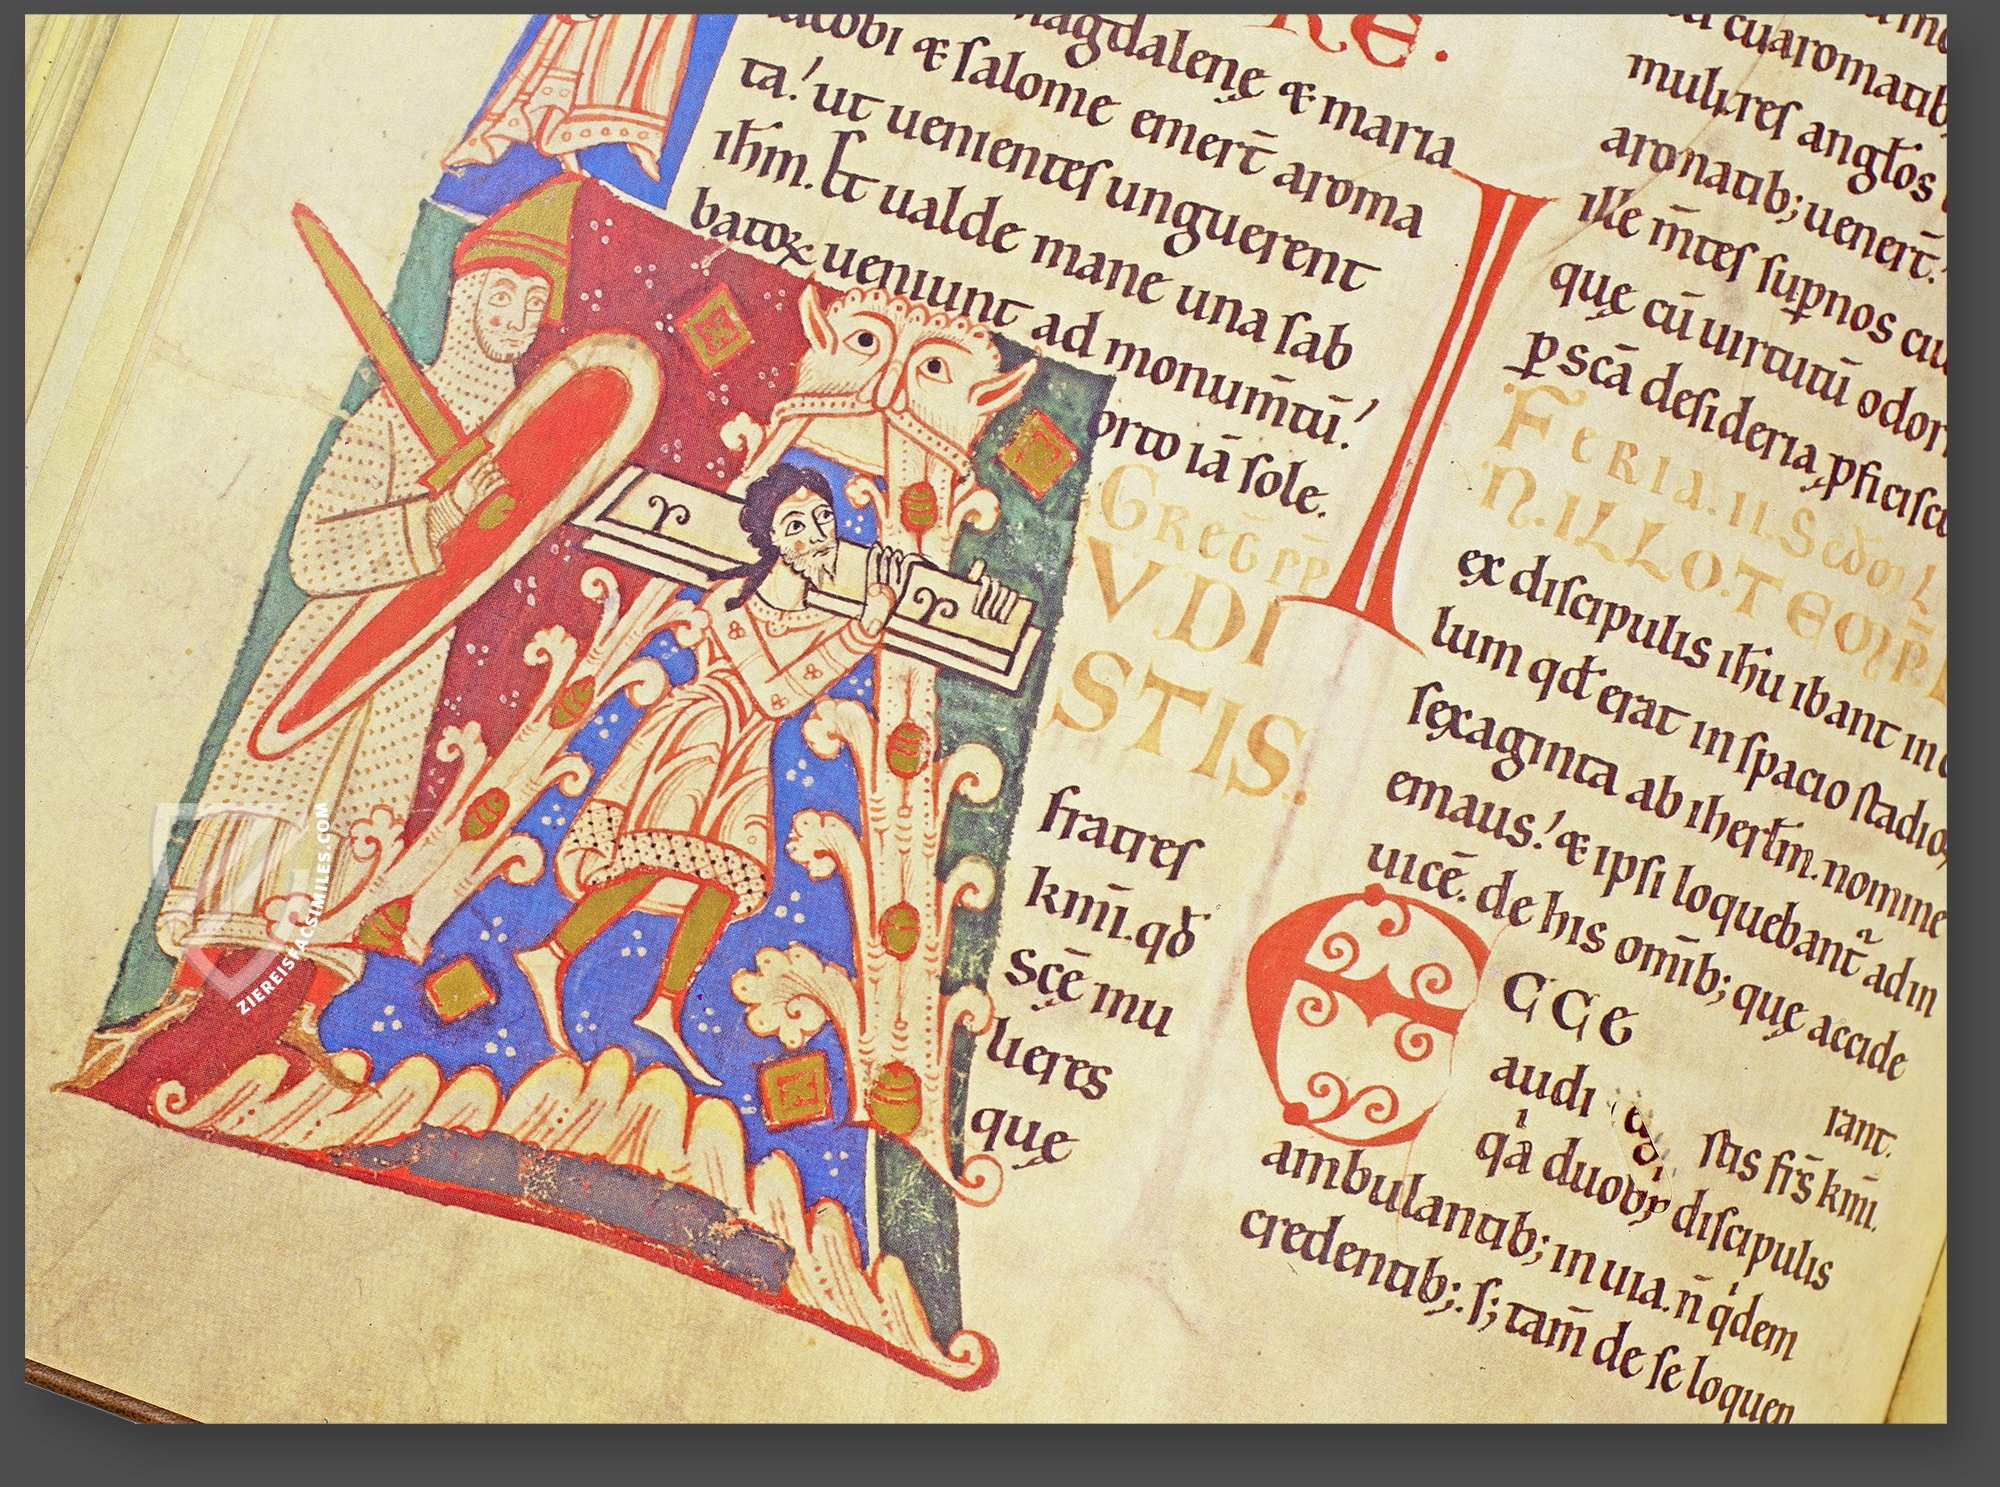 RE.
magdalenę & maria
iacobi & ſalome emer̄t aroma
ta! ut uenienteſ unguerent
ihm̄. S; ualde mane una ſab
batoꝝ ueniunt ad monum̄tū!
orto iā ſole.
GREG PP
VDI
STIS.
fratreſ
km̄i. qđ
ſcę̄ mu
lieres
quę
mulıereſ angłos
aromatib; uener̄t.
ille m̄teſ ſuꝑnos
quę cū uirtutū odor
ꝑ ſcā deſideria, ꝓficiſcū
FERIA. II. S
N. ILLO. TEMP̄R
ex diſcipulis ih̄u ibant in
lum qđ erat in ſpacio ſtadio
ſexaginta ab iherłm. nomine
emaus! & ipſi loquebant̄ ad in
uicē. de his om̄ib; quę accide
rant.
CCe
audi ſtis fr̄s km̄i.
qa duobꝫ diſcipulis
ambulantib; in uia. n̄ qdem
credentib;. ſ; tam̄ de ſe loquen
ZIEREISFACSIMILES.COM